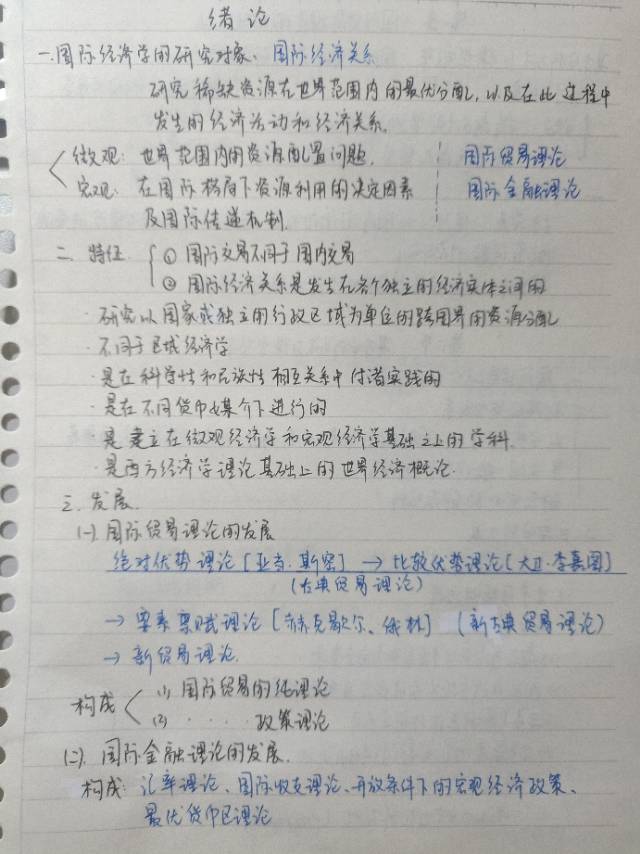 绪论
一.国际经济学的研究对象、国际经济关系
研究稀缺资源在世界范围内的最优分配,以及在此过程中
发生的经济活动和经济关系.
微观:世界范围内的资源配置问题. 国际贸易理论
宏观:在国际格局下资源利用的决定因素 国际金融理论
及国际传递机制.
二.特征 ①国际交易不同于国内交易
②国际经济关系是发生在各个独立的经济实体之间的
·研究以国家或独立的行政区域为单位的跨国界的资源分配
·不同于区域经济学
·是在科学性和民族性相互关系中付诸实践的
·是在不同货币媒介下进行的
·是建立在微观经济学和宏观经济学基础之上的学科.
·是西方经济学理论基础上的世界经济概论.
三.发展
(一).国际贸易理论的发展
绝对优势理论[亚当·斯密] → 比较优势理论[大卫·李嘉图]
(古典贸易理论)
→ 要素禀赋理论[赫克歇尔、俄林] (新古典贸易理论)
→ 新贸易理论.
构成 (1) 国际贸易的纯理论
(2) · · · · · 政策理论
(二).国际金融理论的发展.
构成:汇率理论、国际收支理论、开放条件下的宏观经济政策、
最优货币区理论